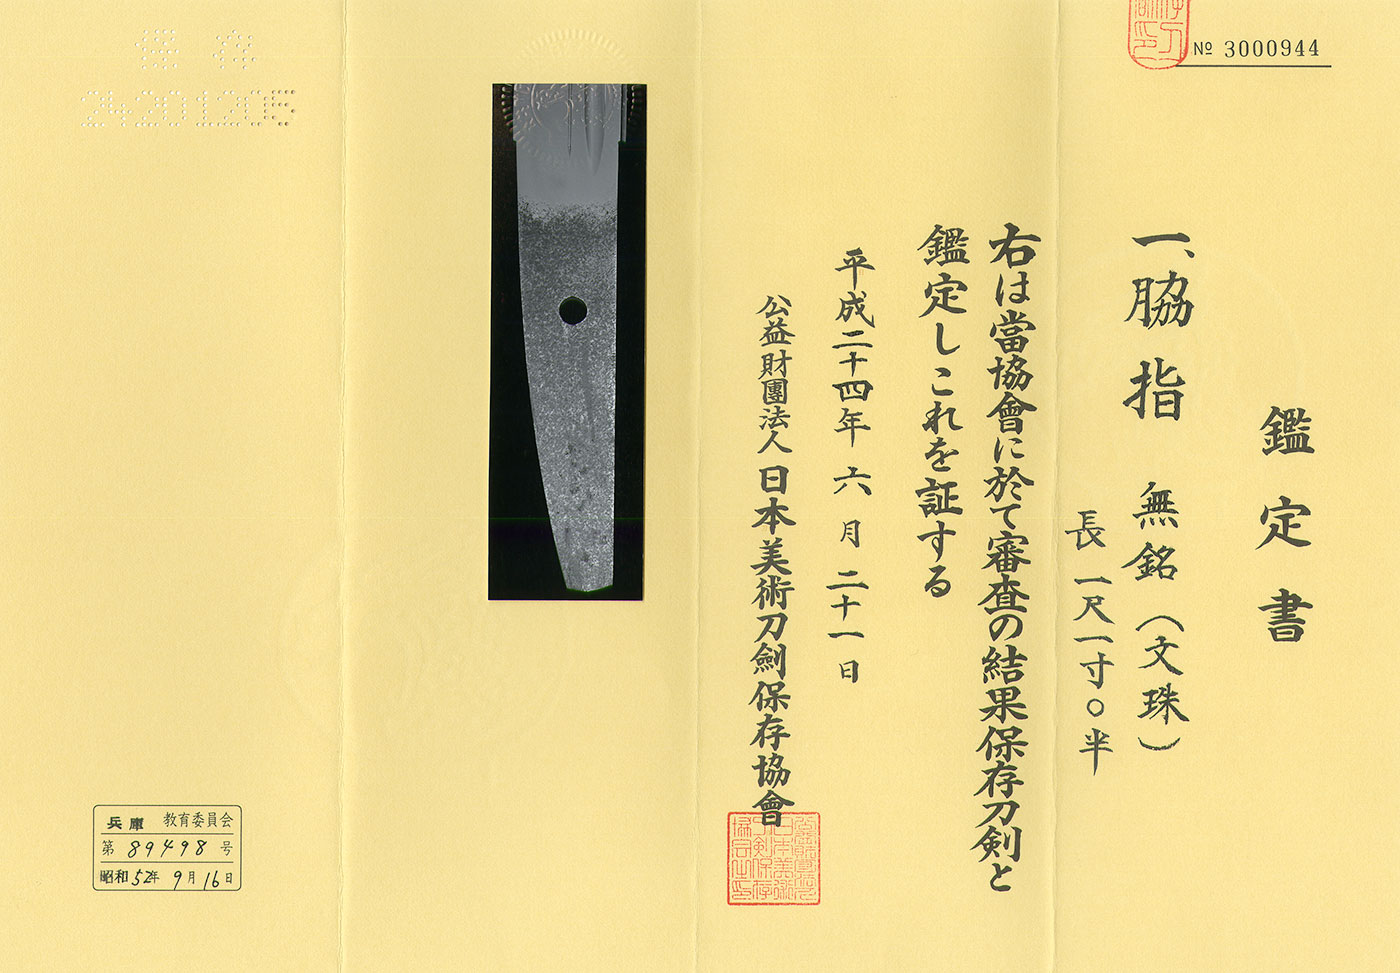 № 3000944
鑑定書
一、脇指 無銘（文珠）
長一尺一寸〇半
右は當協會に於て審査の結果保存刀剣と
鑑定しこれを証する
平成二十四年六月二十一日
公益財團法人日本美術刀劍保存協會
保存
24201205
兵庫 教育委員会
第 89498 号
昭和52年9月16日